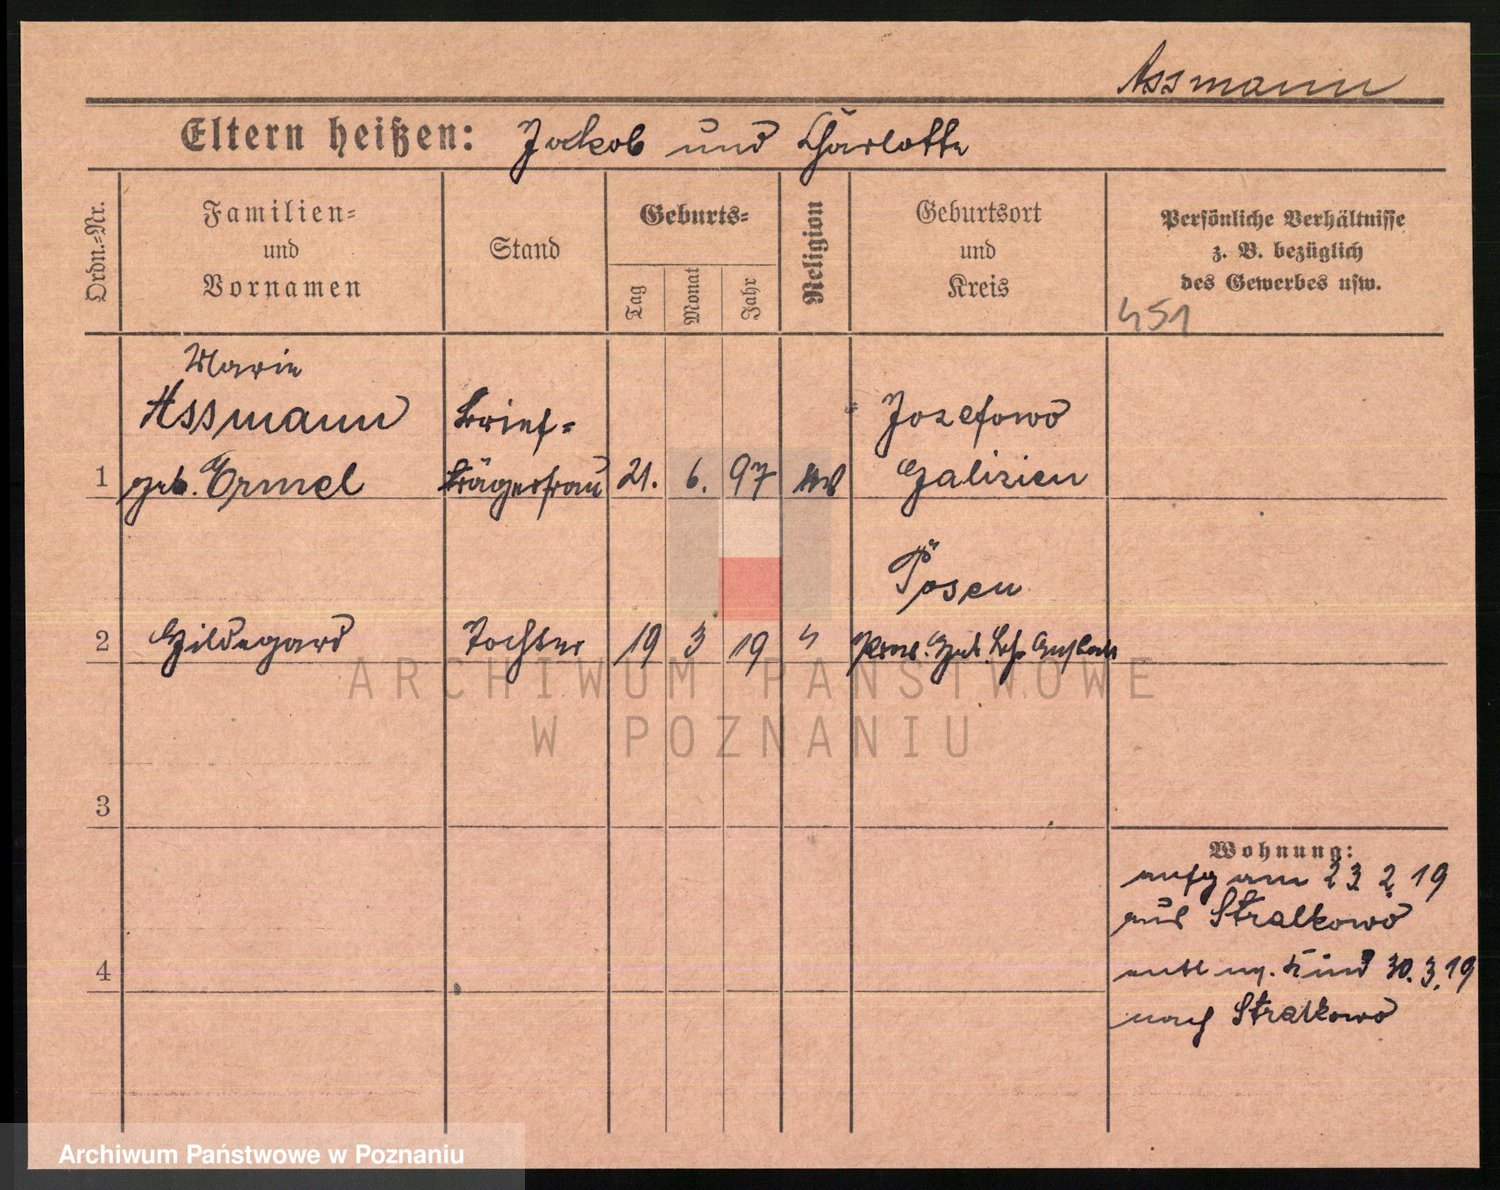 Assmann
Eltern heißen: Jakob und Charlotte
Ordn.=Nr.
Familien=
und
Vornamen
Stand
Geburts=
Tag
Monat
Jahr
Religion
Geburtsort
und
Kreis
Persönliche Verhältnisse
z. B. bezüglich
des Gewerbes usw.
451
Marie
Assmann
1 geb. Ermel
Brief=
trägerfrau
21. 6. 97
Jozefowo
Galizien
2 Hildegard
Tochter
19 3 19 "
Posen
Prov.
3
4
Wohnung:
aufg am 23 2 19
aus Stralkowo
entl m. Kind 30.3.19
nach Stralkowo
ARCHIWUM PAŃSTWOWE
W POZNANIU
Archiwum Państwowe w Poznaniu